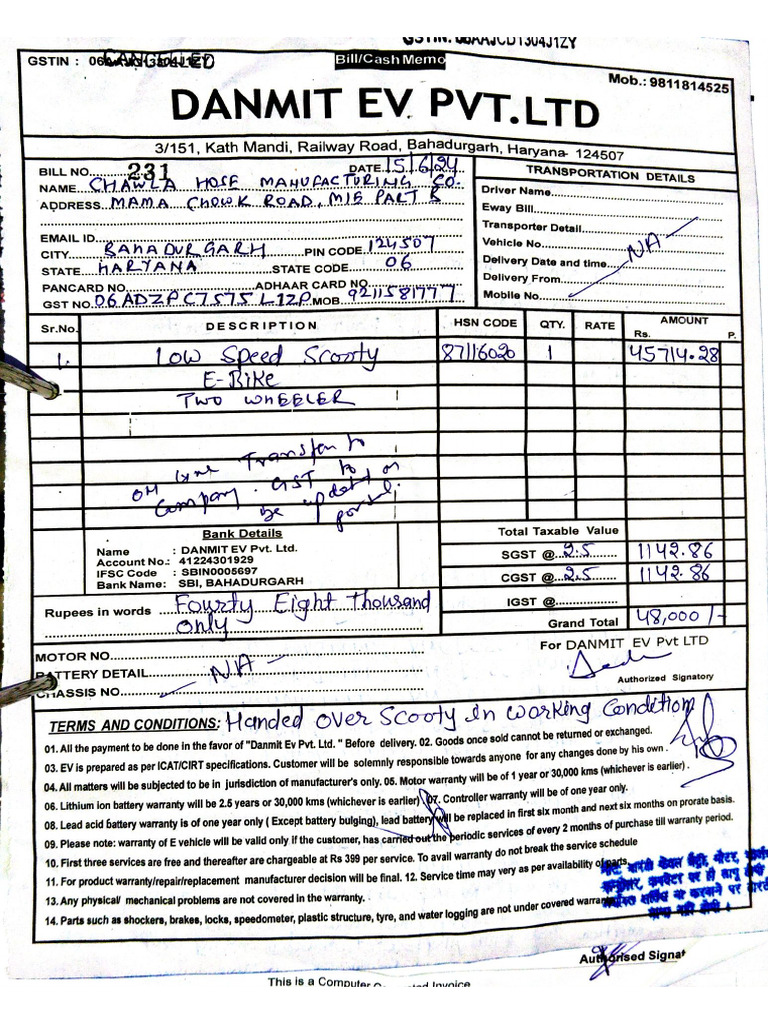 GSTIN: 06AAJCD1304J1ZY
GSTIN : 06
CANCELLED
Bill/Cash Memo
Mob.: 9811814525
DANMIT EV PVT.LTD
3/151, Kath Mandi, Railway Road, Bahadurgarh, Haryana- 124507
BILL NO. 231 DATE 15/6/24
NAME CHAWLA HOSE MANUFACTURING CO.
ADDRESS MAMA CHOWK ROAD, MIE PART B
EMAIL ID
CITY BAHADURGARH PIN CODE 124507
STATE HARYANA STATE CODE 06
PANCARD NO. ADHAAR CARD NO.
GST NO. 06ADZPC7575L1ZP MOB. 9211581777
TRANSPORTATION DETAILS
Driver Name
Eway Bill
Transporter Detail
Vehicle No
Delivery Date and time
Delivery From
Mobile No
NA
Sr.No. DESCRIPTION HSN CODE QTY. RATE AMOUNT
Rs. P.
1. Low Speed Scooty 87116020 1 45714.28
E-Bike
TWO WHEELER
Transfer to
Company. GST to
be updated on
portal.
Bank Details
Name : DANMIT EV Pvt. Ltd.
Account No.: 41224301929
IFSC Code : SBIN0005697
Bank Name: SBI, BAHADURGARH
Total Taxable Value
SGST @ 2.5 1142.86
CGST @ 2.5 1142.86
IGST @
Grand Total 48,000/-
Rupees in words Fourty Eight Thousand
only
For DANMIT EV Pvt LTD
Authorized Signatory
MOTOR NO
BATTERY DETAIL NA
CHASSIS NO
TERMS AND CONDITIONS: Handed over Scooty In working Condition
01. All the payment to be done in the favor of "Danmit Ev Pvt. Ltd. " Before delivery. 02. Goods once sold cannot be returned or exchanged.
03. EV is prepared as per ICAT/CIRT specifications. Customer will be solemnly responsible towards anyone for any changes done by his own .
04. All matters will be subjected to be in jurisdiction of manufacturer's only. 05. Motor warranty will be of 1 year or 30,000 kms (whichever is earlier) .
06. Lithium ion battery warranty will be 2.5 years or 30,000 kms (whichever is earlier) 07. Controller warranty will be of one year only.
08. Lead acid battery warranty is of one year only ( Except battery bulging), lead battery will be replaced in first six month and next six months on prorate basis.
09. Please note: warranty of E vehicle will be valid only if the customer, has carried out the periodic services of every 2 months of purchase till warranty period.
10. First three services are free and thereafter are chargeable at Rs 399 per service. To avail warranty do not break the service schedule
11. For product warranty/repair/replacement manufacturer decision will be final. 12. Service time may very as per availability of parts.
13. Any physical/ mechanical problems are not covered in the warranty.
14. Parts such as shockers, brakes, locks, speedometer, plastic structure, tyre, and water logging are not under covered warranty
नोट: वारंटी केवल बैट्री, मोटर,
कन्वर्टर पर ही लागू होगी
सर्विस ना करवाने पर वारंटी
मान्य नहीं होगी ।
Authorised Signat
This is a Computer Invoice